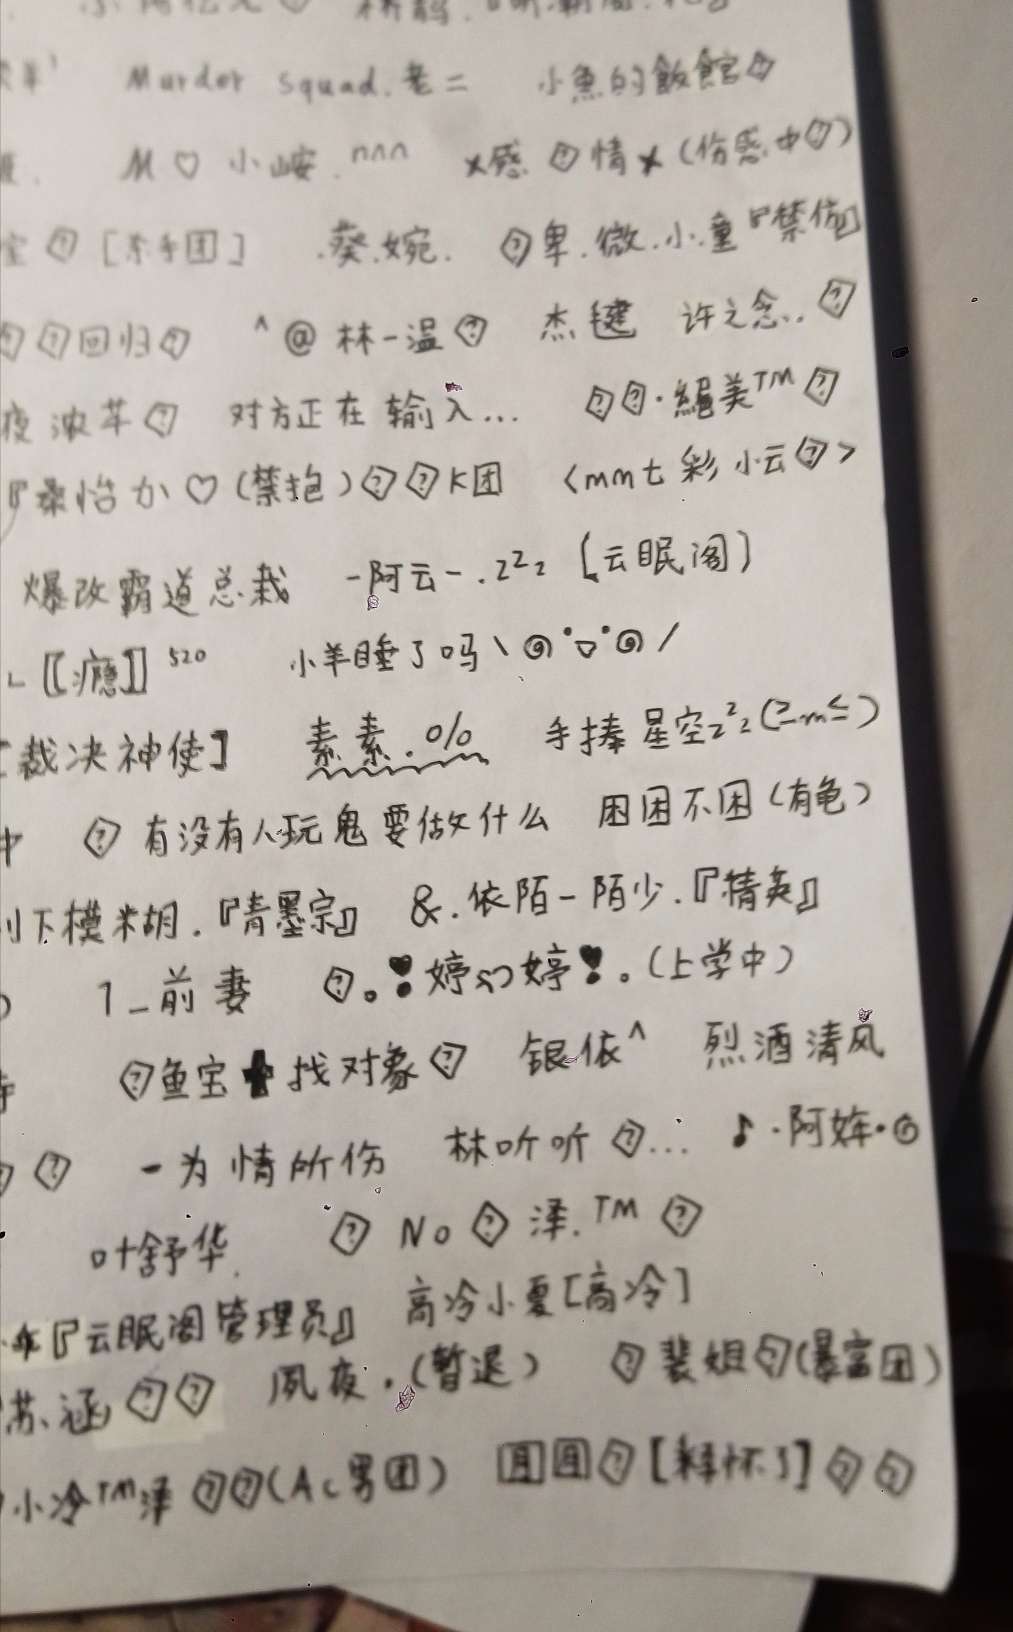 Murder squad.老二 小魚的飯館⍰
M♡小峖.ⁿ^^ ×感⍰情×(伤感中⍰)
⍰[杀手团] .葵.婉. ⍰卑.微.小.童『禁仿』
⍰⍰回归⍰ ^@林一温⍰ 杰毽 许之念..⍰
夜浓苹⍰ 对方正在输入... ⍰⍰·絕美™⍰
(禁抱)⍰⍰K团 <mm七彩小云⍰>
爆改霸道总裁 -阿云-.z²₂[云眠阁]
[[瘾]]⁵²⁰ 小羊睡了吗\◎˙▽˙◎/
[裁决神使] 素素.0% 手捧星空z²₂(≥m≤)
中 ⍰有没有人玩鬼要做什么 困困不困(有龟)
下模米胡.『青墨宗』 &.依陌-陌少.『精英』
1_前妻 ⍰。❣婷幻婷❣。(上学中)
⍰鱼宝✚找对象⍰ 银依^ 烈酒清风
⍰⍰ -为情所伤 林听听⍰... ♪·阿婞·◎
叶舒华. ⍰No⍰泽.™⍰
『云眠阁管理员』 高冷小夏[高冷]
苏.涵⍰⍰ 夙夜.(暂退) ⍰裴姐⍰(暴富团)
小冷™泽⍰⍰(Ac男团) 圆圆⍰[释怀了]⍰⍰